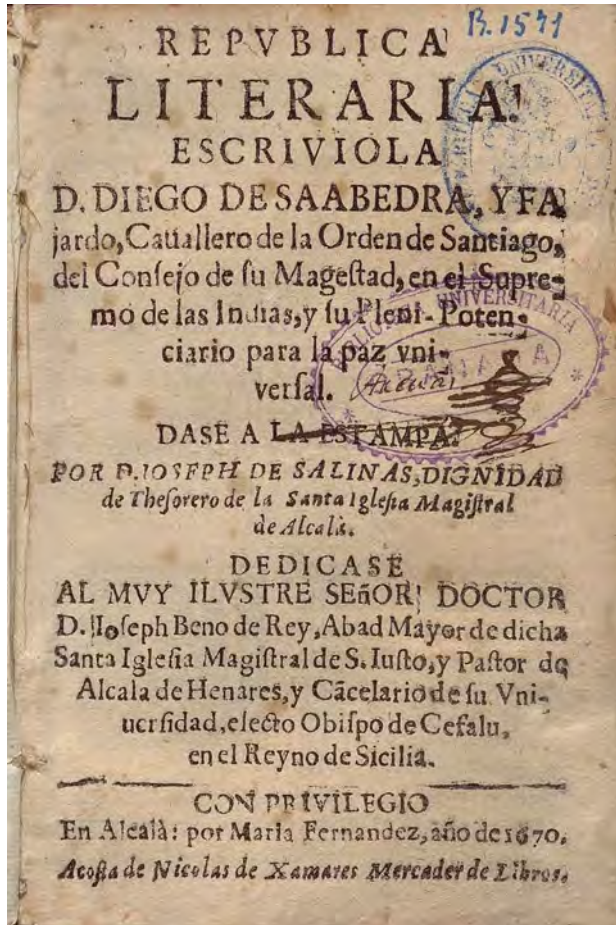 B.1571
REPVBLICA
LITERARIA.
ESCRIVIOLA
D. DIEGO DE SAABEDRA, Y FA
jardo, Cauallero de la Orden de Santiago,
del Conſejo de ſu Mageſtad, en el Supre-
mo de las Indias, y ſu Pleni-Poten-
ciario para la paz vni-
verſal.
BIBLIOTECA UNIVERSITARIA
GRANADA
DASE A LA ESTAMPA.
POR D. IOSEPH DE SALINAS, DIGNIDAD
de Theſorero de la Santa Igleſia Magiſtral
de Alcalà.
DEDICASE
AL MVY ILVSTRE SEñOR! DOCTOR
D. Ioſeph Beno de Rey, Abad Mayor de dicha
Santa Igleſia Magiſtral de S. Iuſto, y Paſtor de
Alcala de Henares, y Cãcelario de ſu Vni-
uerſidad, electo Obiſpo de Cefalu,
en el Reyno de Sicilia.
CON PRIVILEGIO
En Alcalà: por Maria Fernandez, año de 1670.
Acoſta de Nicolas de Xamares Mercader de Libros.